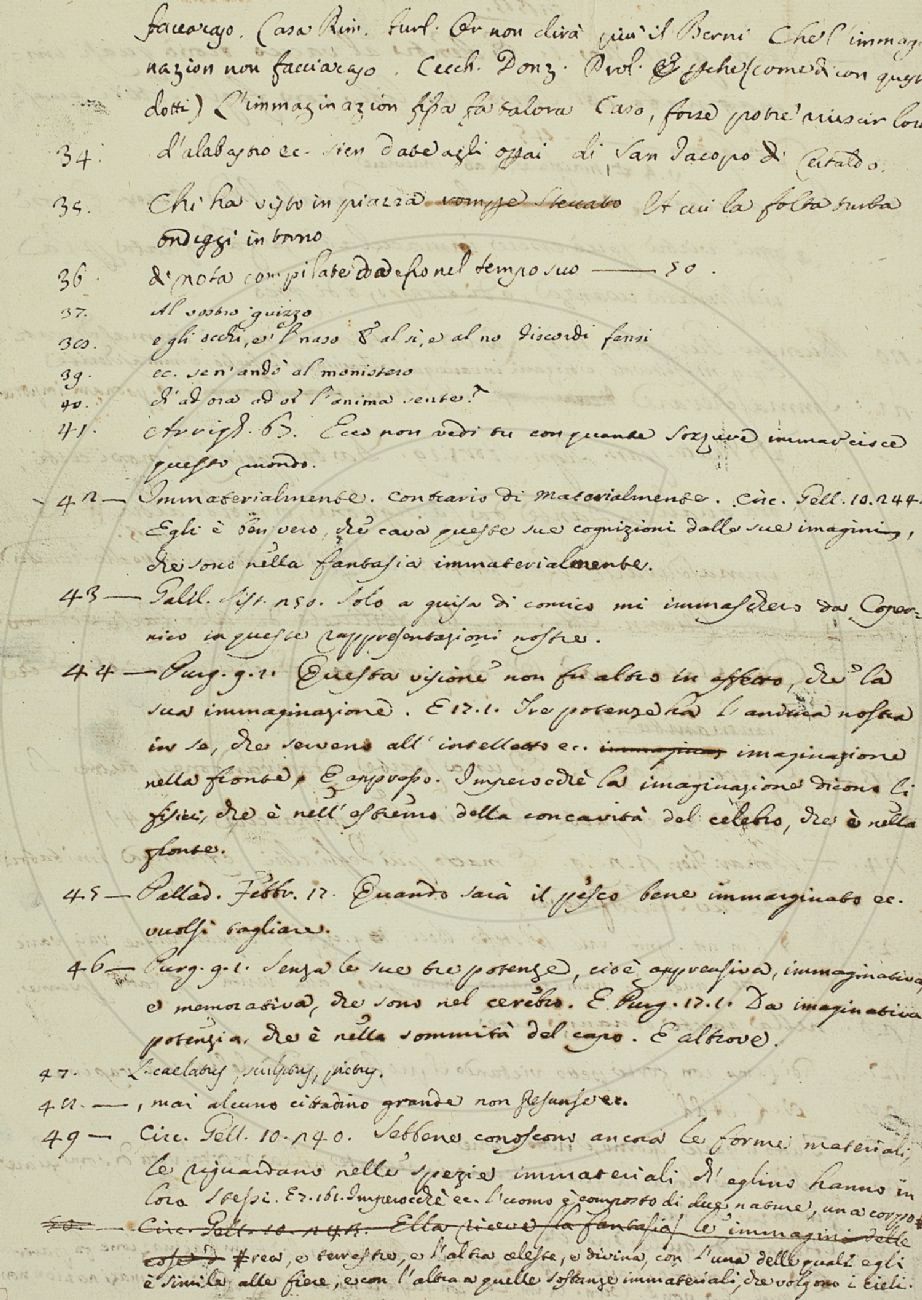 facciacaso. Casa Rim. burl. Or non dirà più il Berni Che l'immagi
nazion non facciacaso. Cecch. Donz. Prol. E sse (come dicon questi
dotti) L'immaginazion fissa fa talora Caso, forse potre' riuscir loro
34. d'alabastro ec. sien date agli opai di San Jacopo di Certaldo.
35. Chi ha visto in piazza rompe steccato Ut cui la folta turba
ondeggi intorno
36. di nota compilate da esso nel tempo suo —— 50.
37. Al vostro guizzo
38. e gli occhi, e 'l naso & al sì, e al no discordi fensi
39. ec. se n'andò al monistero
40. ch'ad ora ad or l'anima sente?
41. Arrigh. 63. Ecco non vedi tu con quante sozzure immarcisce
questo mondo.
42— Immaterialmente. contrario di Materialmente. Circ. Gell. 10.244.
Egli è ben vero, che cava queste sue cognizioni dalle sue imagini,
che sono nella fantasia immaterialmente.
43— Galil. Sist. 250. Solo a guisa di comico mi immaschero da Coper=
nico in queste rappresentazioni nostre.
44— Purg. 9. 1. Questa visione non fu altro in effetto, che la
sua immaginazione. E 17. 1. Tre potenze ha l'anima nostra
in se, che servono all'intelletto ec. imaginazione
nella fronte, E appresso. Imperocchè la imaginazione dicono li
fisici, che è nell'estremo della concavità del celebro, che è nella
fronte.
45— Pallad. Febbr. 17. Quando sarà il pesco bene immarginato ec.
vuolsi tagliare.
46— Purg. 9. 1. Senza le sue tre potenze, cioè apprensiva, immaginativa,
e memorativa, che sono nel cerebro. E Purg. 17. 1. Da imaginativa
potenzia, che è nella sommità del capo. E altrove.
47. caelatus, sculptus, pictus.
48.—, mai alcuno cittadino grande non presunse ec.
49— Circ. Gell. 10. 240. Sebbene conoscono ancora le forme materiali,
le riguardano nelle spezie immateriali ch'eglino hanno in
loro stessi. E 7. 161. Imperocchè ec. l'uomo è composto di due nature, una corpo
50— Circ. Gell. 10. Ella riceve (la fantasia) le immagini delle
cose rea, e terrestre, e l'altra celeste, e divina, con l'una delle quali egli
è simile alle fiere, e con l'altra a quelle sostanze immateriali, che volgono i cieli.